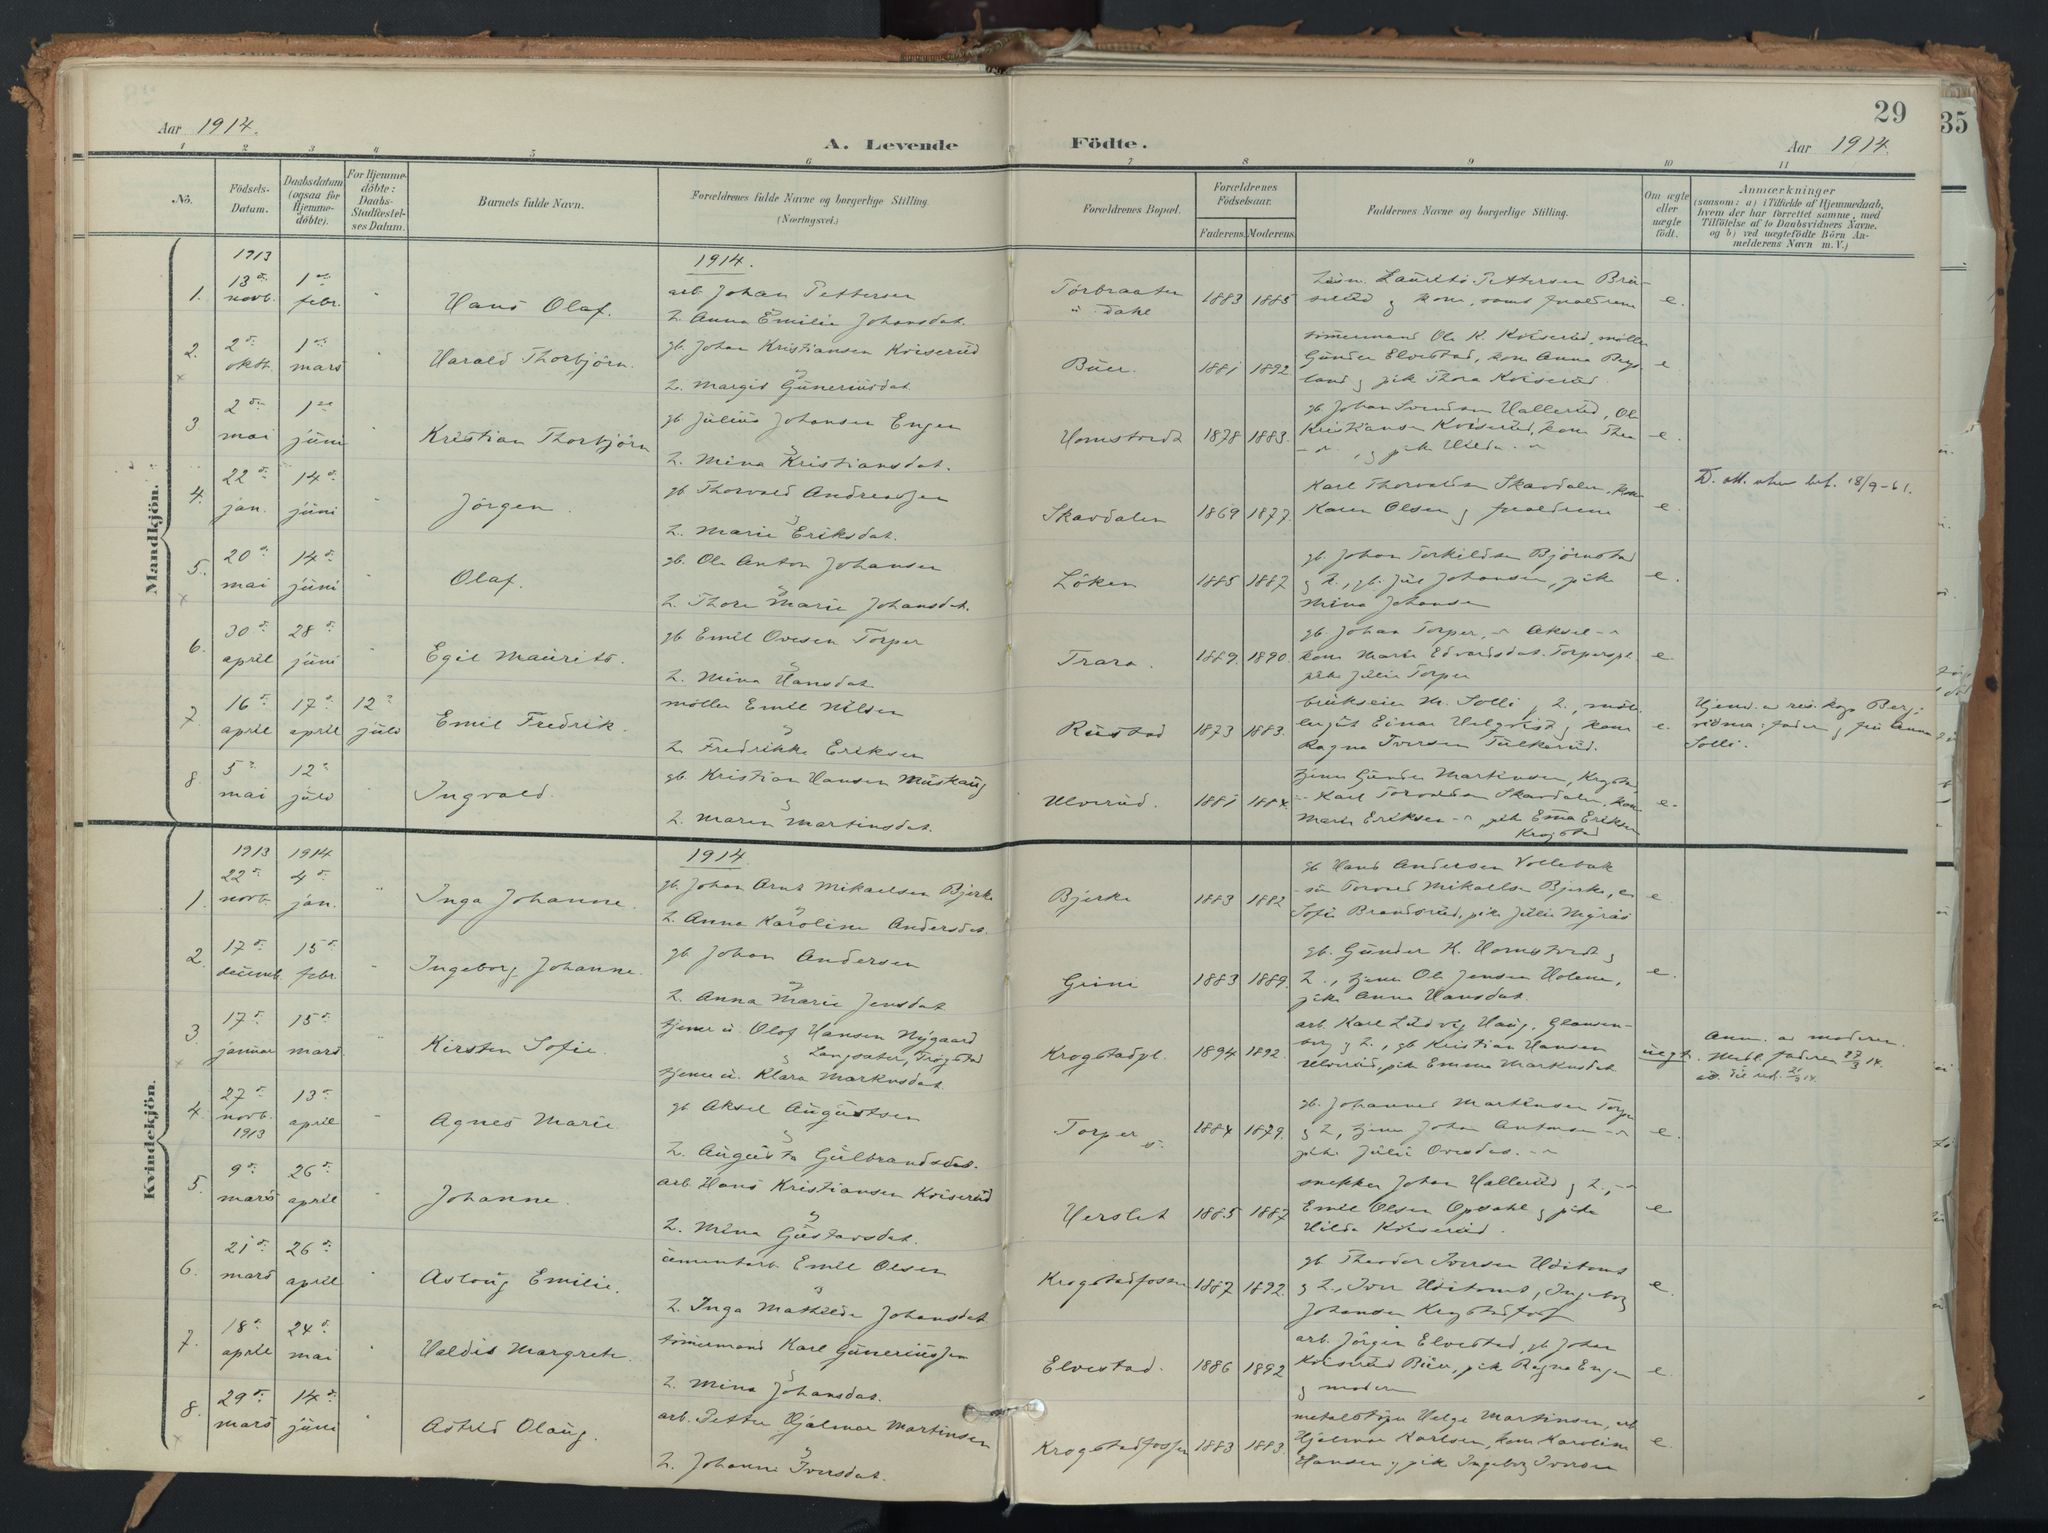 29
35
Aar 1914.
A. Levende Födte.
Aar 1914.
1 2 3 4 5 6 7 8 9 10 11
Nö.
Födsels-Datum.
Daabsdatum (ogsaa for Hjemme-döbte).
For Hjemme-döbte: Daabs-Stadfæstel-ses Datum.
Barnets fulde Navn.
Forældrenes fulde Navne og borgerlige Stilling.
(Næringsvei.)
Forældrenes Bopæl.
Forældrenes Födselsaar.
Faderens. Moderens.
Faddernes Navne og borgerlige Stilling.
Om ægte eller uægte födt.
Anmærkninger
(saasom: a) i Tilfælde af Hjemmedaab,
hvem der har forrettet samme, med
Tilföielse af to Daabsvidners Navne,
og b) ved uægtefödte Börn An-
melderens Navn m. V.)
Mandkjön.
1913
1914.
1. 13 novb. 1 febr. Hans Olaf.
arb. Johan Pettersen
Anna Emilie Johansdat.
Torbraaten u. Dahl 1883 1885 e.
2. 2 oktb. 1 mars Harald Thorbjörn.
gb. Johan Kristiansen Kviserud
Margit Guneriusdat.
Buer. 1881 1892
tömmermand Ole K. Kviserud, möller
Gunder Elvestad, kone Anna Berg-
land og pike Thora Kviserud.
e.
3 2 mai 1 juni Kristian Thorbjörn
gb. Julius Johansen Engen
Mina Kristiansdat.
Homstvedt 1878 1883.
gb. Johan Svendsen Hallerud, Ole
Kristiansen Kviserud, kone Thea
og pike Hilda
e.
4. 22 jan. 14 juni Jörgen
gb. Thorvald Andreassen
Marie Eriksdat.
Skavdalen 1869 1877.
Karl Thorvaldsen Skavdalen, kone
Karen Olsen og forældrene
e.
D. att. uten bet. 18/9-61.
5. 20 mai 14 juni Olaf.
gb. Ole Anton Johansen
Thora Marie Johansdat.
Löken 1885 1887
gb. Johan Torkildsen Björnstad
og h., gb. Jul Johansen, pike
Mina Johansen
e.
6. 30 april 28 juni Egil Maurits.
gb Emil Ovesen Torper
Mina Hansdat
Trara. 1889. 1890.
gb. Johan Torper, Aksel
kone Marie Edvardsdat. Torperspl.
pike Julie Torper
e.
7. 16 april 17 april 12 juli Emil Fredrik.
möller Emil Nilsen
Fredrikke Eriksen
Rustad 1873 1883.
brukseier M. Solli og h., möl-
lergut Einar og kone
Ragna Iversen Tulkerud.
e.
Hjemd. av res. kap. Berg;
vidner: faderen og fru Anna
Solli.
8. 5 mai 12 juli Ingvald.
gb. Kristian Hansen Muskaug
Maren Martinsdat.
Ulverud. 1881 1884.
tjener Gunder Martinsen, Krogstad
Karl Torvaldsen Skavdalen, kone
Marie Eriksen pike Emma Eriksen
Krogstad
e.
Kvindekjön.
1913 1914
1914.
1. 22 novb. 4 jan. Inga Johanne.
gb. Johan Arnt Mikaelsen Bjerke
Anna Karoline Andersdat.
Bjerke 1883 1882
gb Hans Andersen Vollebæk
Torvald Mikaelsen Bjerke,
Sofie Brandsrud, pike Julie Nygaas
e.
2. 17 decemb. 15 febr Ingeborg Johanne.
gb. Johan Andersen
Anna Marie Jensdat
Grini 1883 1889.
gb. Gunder K. Homstvedt og
h., tjener Ole Jensen Holene,
pike Anna Hansdat.
e.
3. 17 januar 15 mars Kirsten Sofie.
tjener u. Olof Hansen Nygaard
Langsæter, Trögstad
tjener u. Klara Markusdat
Krogstadpl. 1894 1892.
arb. Karl Ludvig Haug, Glausen-
berg og h., gb Kristian Hansen
Ulverud, pike Emma Markusdat
uegt.
Anm. av moderen.
Medd. faderen 27/3 14.
4. 27 novb. 1913 13 april Agnes Marie
gb Aksel Augustsen
Augusta Gulbrandsdat.
Torper 1884 1879.
gb. Johannes Martinsen Torper
og h., tjener Johan Antonsen
pike Julie Ovesdat.
e.
5. 9 mars 26 april Johanne.
arb. Hans Kristiansen Kviserud
Mina Gustavsdat.
Herslet 1885 1887
snekker Johan Hallerud og h.,
Emil Olsen Opsahl og pike
Hilda Kviserud.
e
6. 21 mars 26 april Aslaug Emilie.
cementarb. Emil Olsen
Inga Mathilde Johansdat
Krogstadfossen 1887 1892.
gb Theodor Iversen Uditoms
og h., Iver Uditoms, Ingeborg
Johansen Krogstadfoss
e.
7. 18 april 24 mai Valdis Margrete.
tömmermand Karl Guneriussen
Mina Johansdat.
Elvestad. 1886 1892
arb. Jörgen Elvestad, gb Johan
Kviserud Buer, pike Ragna Engen
og moderen
e.
8. 29 mars 14 juni Astrid Olaug.
arb. Petter Hjalmar Martinsen
Johanne Iversdat.
Krogstadfossen 1883 1883.
metalstöper Helge Martinsen, arb
Hjalmar Karlsen, kone Karoline
Hansen og pike Ingeborg Iversen
e.